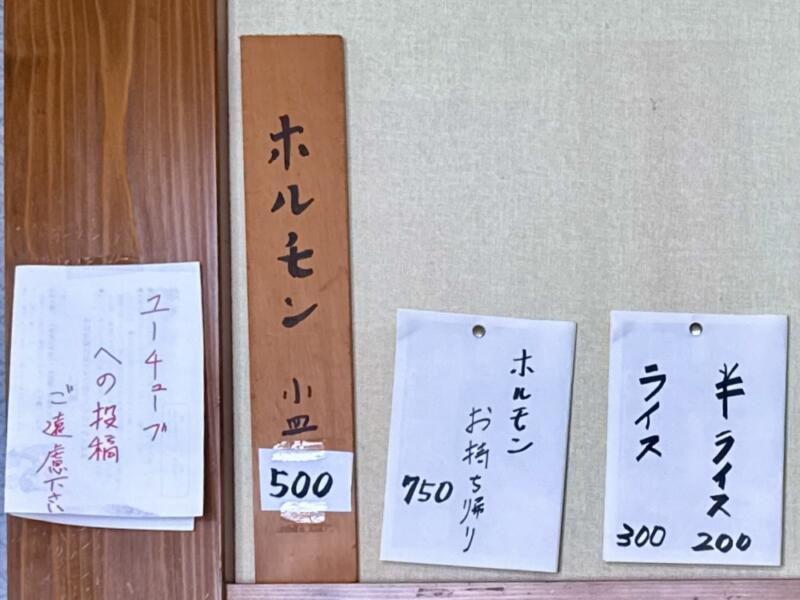 ユーチューブ
への投稿
ご遠慮下さい
ホルモン 小皿
500
ホルモン
お持ち帰り
750
半ライス
200
ライス
300